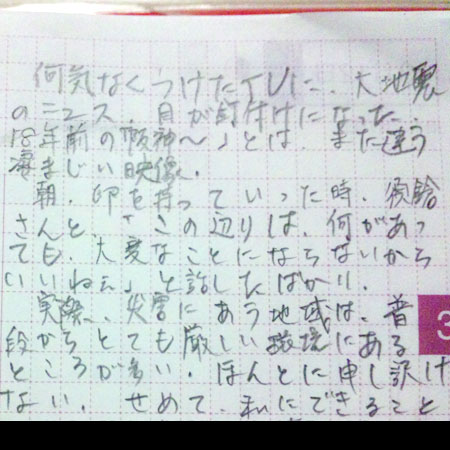 何気なくつけたTVに、大地震
のニュース、目が釘付けになった。
18年前の「阪神〜」とは、また違う
凄まじい映像。
朝、卵を持っていった時、
さんと、「この辺りは、何があっ
ても、大変なことにならないから
いいねぇ」と話したばかり。
実際、災害にあう地域は、普
段からとても厳しい環境にある
ところが多い。ほんとに申し訳け
ない。せめて、私にできること
3